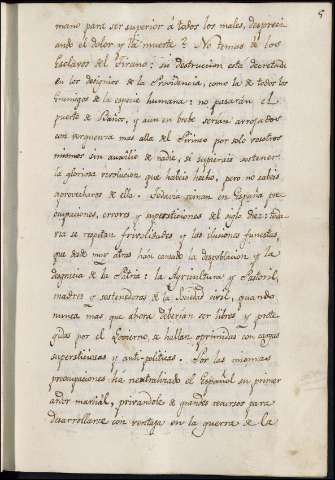 5
mano para ser superior á todos los males, despreci
ando el dolor y la muerte? No temais de los
Esclavos del Tirano: su destruccion esta decretada
en los designios de la Providencia, como la de todos los
Enemigos de la especie humana: no pasarán el
puerto de Baños, y aun en brebe serian arrojados
con verguenza mas alla del Pirineo por solo vosotros
mismos sin auxilio de nadie, si supierais sostener
la gloriosa revolucion que habeis hecho, pero no sabeis
aprovecharos de ella. Todavia reinan en España pre
ocupaciones, errores y supersticiones del siglo diez: toda
via se respetan frivolidades y las ilusiones funestas,
que desde muy atras han causado la despoblacion y la
desgracia de la Patria: la Agricultura y Pastoril,
madres y sostenedoras de la Sociedad civil, quando
nunca mas que ahora deberian ser libres y prote
gidas por el Govierno, se hallan oprimidas con cargas
supersticiosas y anti-politicas. Por las mismas
preocupaciones há neutralizado el Español su primer
ardor marcial, privandole de grandes recursos para
desarrollarse con ventaja en la guerra de la